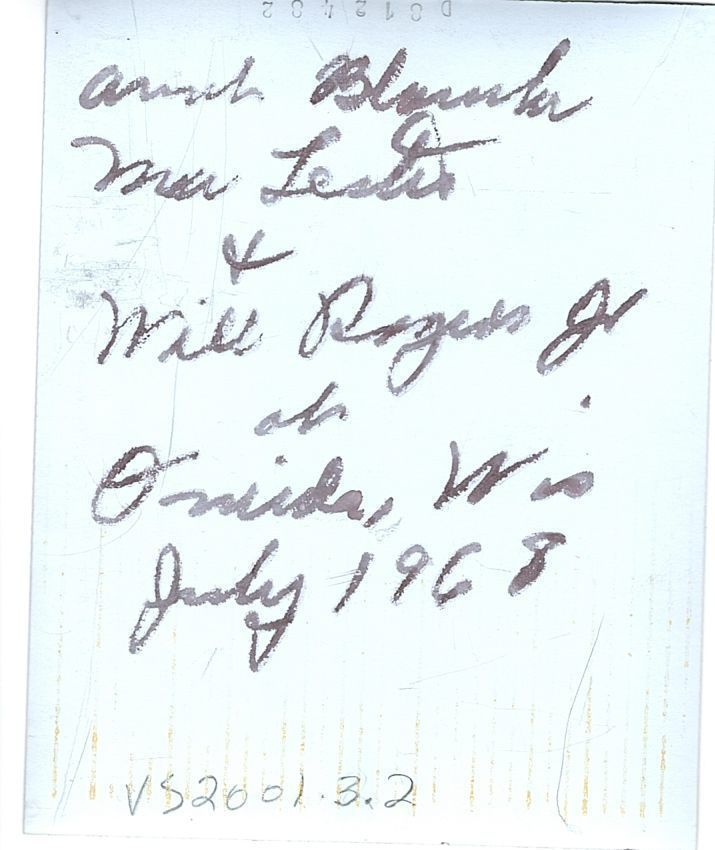 D812482
Blanche
Leslie
&
Will Rogers Jr
at
Oneida, Wis
July 1968
VS2001.3.2